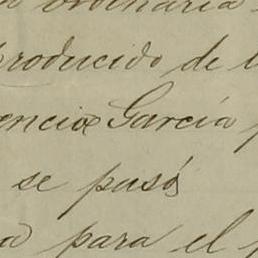 ordinaria
producido de l
encio García p
se pasó
a para el p